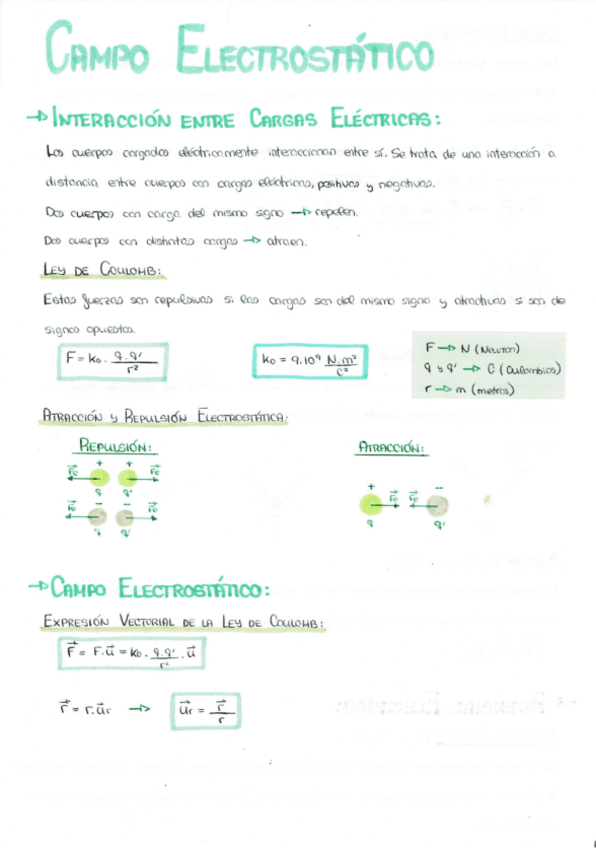 CAMPO ELECTROSTÁTICO
→ INTERACCIÓN ENTRE CARGAS ELÉCTRICAS:
Los cuerpos cargados eléctricamente interaccionan entre sí. Se trata de una interacción a
distancia entre cuerpos con cargas eléctricas, positivas y negativas.
Dos cuerpos con carga del mismo signo → repelen.
Dos cuerpos con distintas cargas → atraen.
LEY DE COULOMB:
Estas fuerzas son repulsivas si las cargas son del mismo signo y atractivas si son de
signos opuestos.
F = k₀ · q·q' / r²
k₀ = 9·10⁹ N·m² / C²
F → N (Newton)
q y q' → C (Culombios)
r → m (metros)
ATRACCIÓN Y REPULSIÓN ELECTROSTÁTICA:
REPULSIÓN:
ATRACCIÓN:
+ +
q q'
- -
q q'
+ -
q q'
→ CAMPO ELECTROSTÁTICO:
EXPRESIÓN VECTORIAL DE LA LEY DE COULOMB:
F⃗ = F·u⃗ = k₀ · q·q' / r² · u⃗
r⃗ = r·u⃗r → u⃗r = r⃗ / r